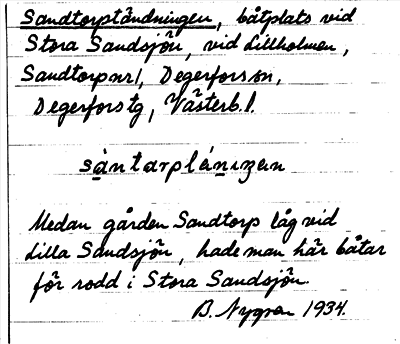 Sandtorptändningen, båtplats vid
Stora Sandsjön, vid Lillholmen,
Sandtorp nr 1, Degerfors sn,
Degerfors tg, Västerb. l.
sàntarplánıŋən
Medan gården Sandtorp låg vid
Lilla Sandsjön, hade man här båtar
för rodd i Stora Sandsjön.
B. Nygren 1934.